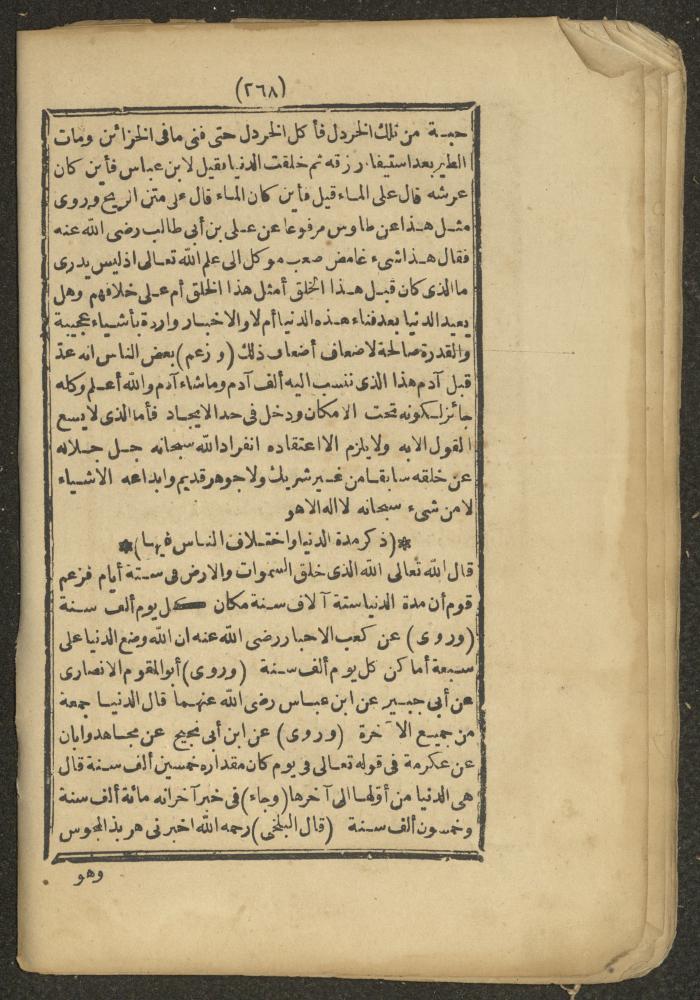 (٢٦٨)
حبة من تلك الخردل فأ كل الخردل حتى فنى ما فى الخزائن ومات
الطير بعد استيفاء رزقه ثم خلقت الدنيا فقيل لابن عباس فأين كان
عرشه قال على الماء قيل فأين كان الماء قال على متن الريح وروى
مثل هذا عن طاوس مرفوعا عن على بن أبى طالب رضى الله عنه
فقال هذا شىء غامض صعب موكل الى علم الله تعالى اذ ليس يدرى
ما الذى كان قبل هذا الخلق أمثل هذا الخلق أم على خلافهم وهل
يعيد الدنيا بعد فناء هذه الدنيا أم لا والاخبار واردة بأشياء عجيبة
والقدرة صالحة لاضعاف أضعاف ذلك (وزعم) بعض الناس انه عدّ
قبل آدم هذا الذى ننسب اليه ألف آدم وماشاء آدم والله أعلم وكله
جائز لكونه تحت الامكان ودخل فى حد الايجاد فأما الذى لا يسع
القول الا به ولا يلزم الا اعتقاده انفراد الله سبحانه جل جلاله
عن خلقه سابقا من غير شريك ولا جوهر قديم وابداعه الاشياء
لا من شىء سبحانه لا اله الا هو
*(ذكر مدة الدنيا واختلاف الناس فيها)*
قال الله تعالى الله الذى خلق السموات والارض فى ستة أيام فزعم
قوم أن مدة الدنيا ستة آلاف سنة مكان كل يوم ألف سنة
(وروى) عن كعب الاحبار رضى الله عنه ان الله وضع الدنيا على
سبعة أما كن كل يوم ألف سنة (وروى) أبو المقوم الانصارى
عن أبى جبير عن ابن عباس رضى الله عنهما قال الدنيا جمعة
من جميع الآخرة (وروى) عن ابن أبى نجيح عن مجاهد وابان
عن عكرمة فى قوله تعالى فى يوم كان مقداره خمسين ألف سنة قال
هى الدنيا من أوّلها الى آخرها (وجاء) فى خبر آخر انه مائة ألف سنة
وخمسون ألف سنة (قال البلخى) رحمه الله اخبر نى هربذ المجوس
وهو